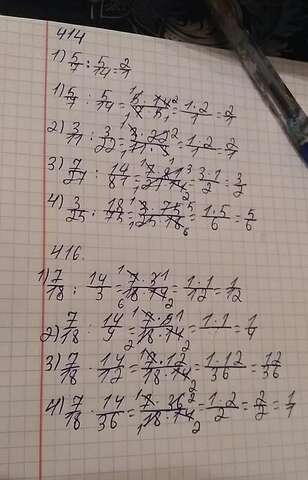 414
1) 5/7 : 5/14 = 2/1
1) 5/7 : 5/14 = 5·14/7·5 = 1·2/1 = 2/1
2) 3/11 : 3/22 = 3·22/11·3 = 1·2/1 = 2/1
3) 7/27 : 14/81 = 7·81/27·14 = 3·1/2 = 3/2
4) 3/25 : 18/75 = 3·75/25·18 = 1·5/6 = 5/6
416.
1) 7/18 : 14/3 = 7·3/18·14 = 1·1/12 = 1/12
2) 7/18 : 14/9 = 7·9/18·14 = 1·1/ = 1/4
3) 7/18 : 14/12 = 7·12/18·14 = 1·12/36 = 12/36
4) 7/18 : 14/36 = 7·36/18·14 = 1·2/2 = 2/2 = 1/1